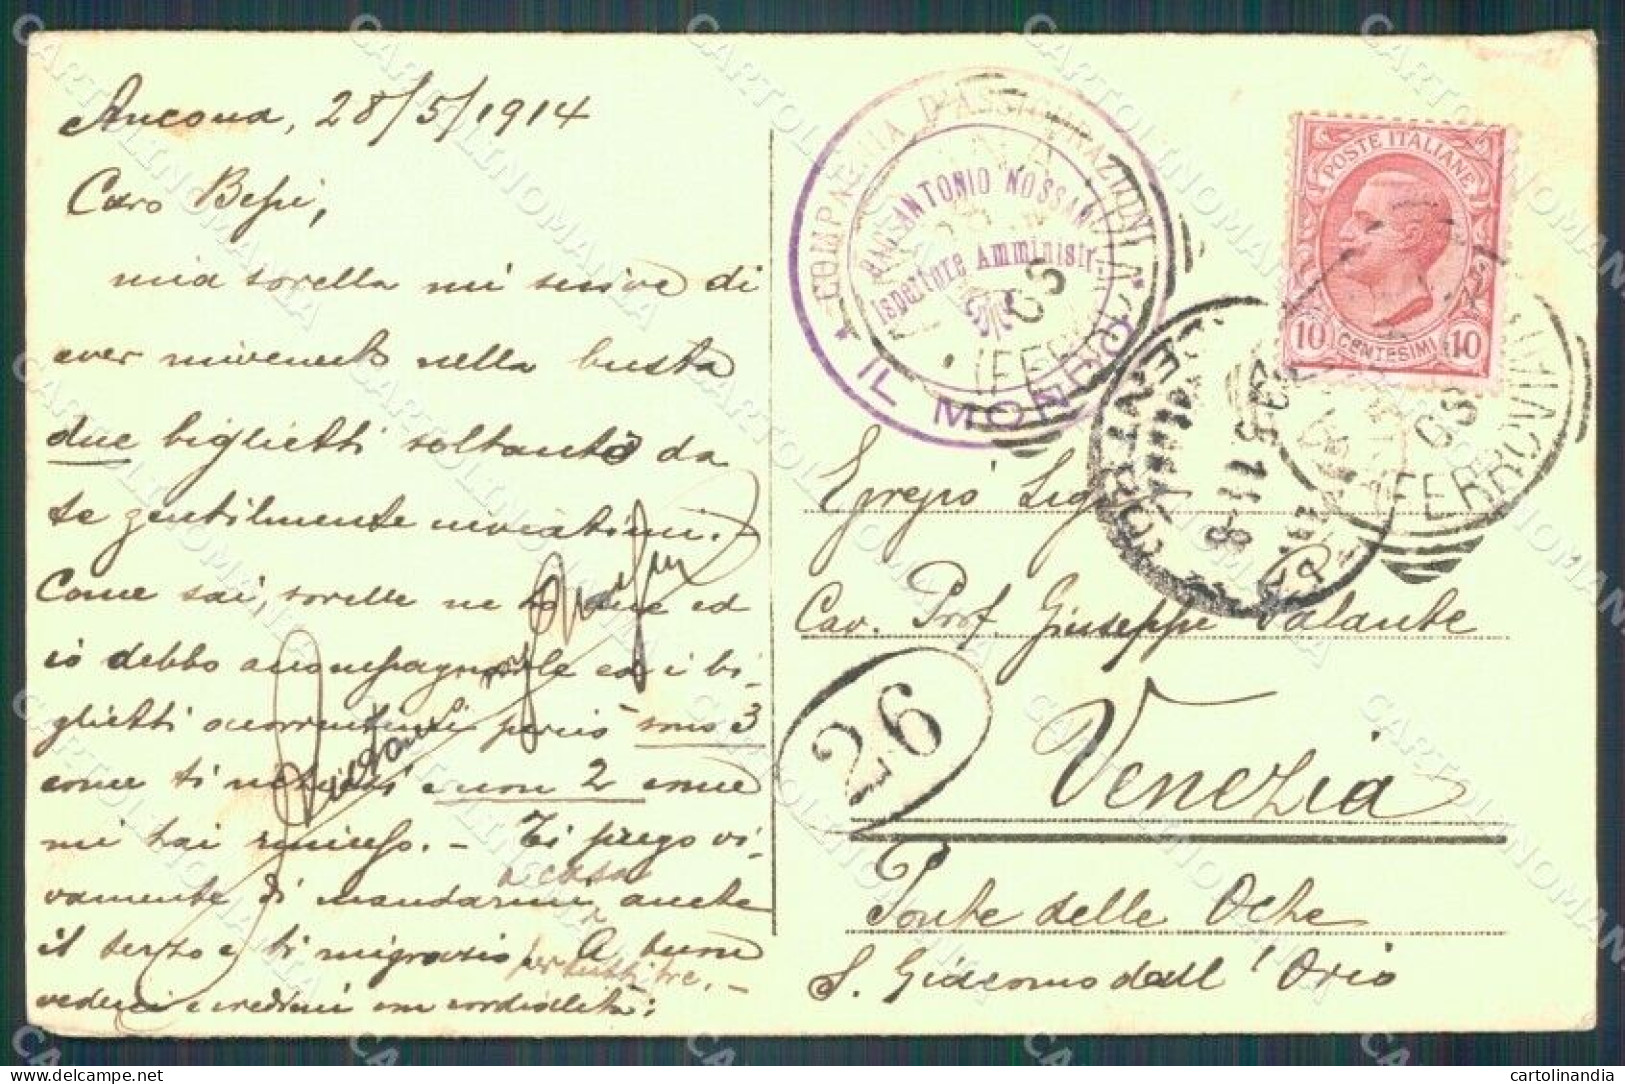 Ancona, 28/5/1914
Caro Bepi,
mia sorella mi scrive di
aver rinvenuto nella busta
due biglietti soltanto da
te gentilmente inviatimi.-
Come sai, sorelle ne ho due ed
io debbo accompagnarle ed i bi-
glietti occorrentimi perciò sono 3
come ti richiesi e non 2 come
mi hai rimesso. - Ti prego vi-
vamente di mandarmi a casa anche
il terzo e ti ringrazio per tutti e tre. - A buon
vederci e credimi con cordialità:
COMPAGNIA D'ASSICURAZIONI
RAG. ANTONIO ROSSANI
Ispettore Amministr.
IL MONDO
POSTE ITALIANE
10 CENTESIMI 10
FERROVIA
FERROVIA
29.5.14-8
Egregio Sig
Cav. Prof. Giuseppe Palante
26
Venezia
Ponte delle Oche
S. Giacomo dall'Orio
CARTOLINOMANIA
cartolinandia